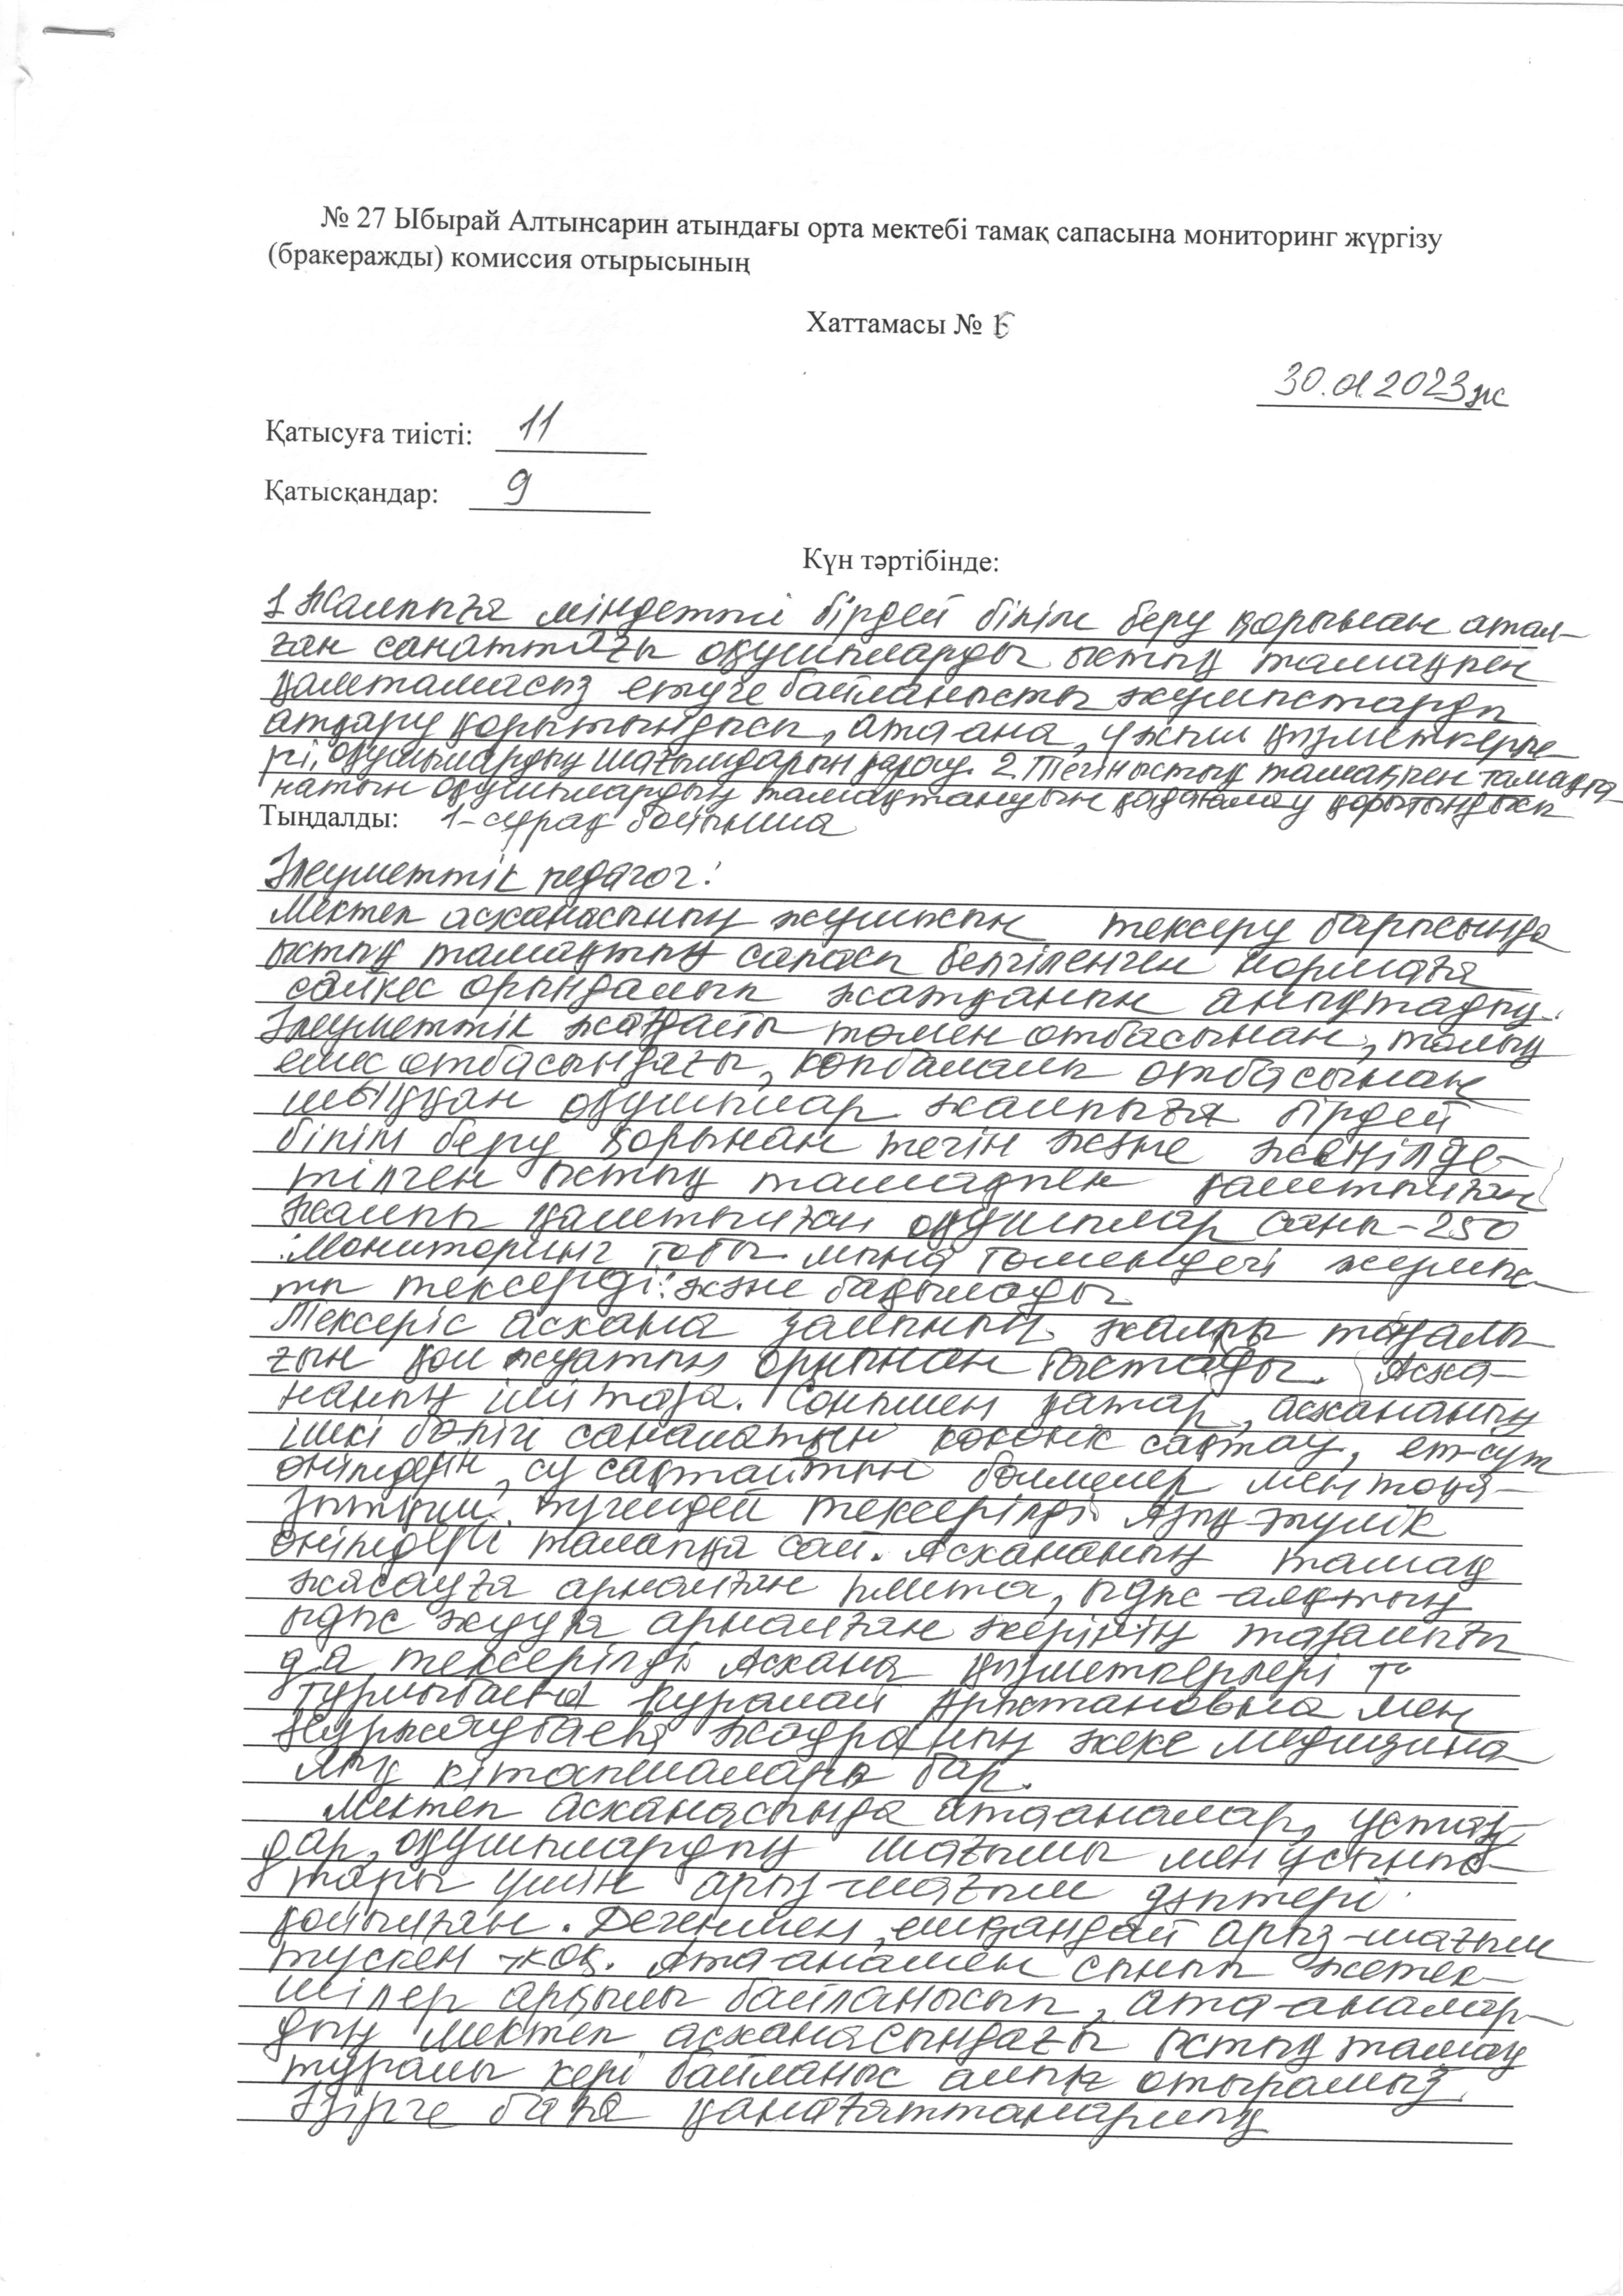 № 27 Ыбырай Алтынсарин атындағы орта мектебі тамақ сапасына мониторинг жүргізу
(бракеражды) комиссия отырысының
Хаттамасы № 6
30.01.2023 ж
Қатысуға тиісті: 11
Қатысқандар: 9
Күн тәртібінде:
1 Жалпыға міндетті бірдей білім беру қорынан атал-
ған санаттағы оқушыларды ыстық тамақпен
қамтамасыз етуге байланысты жұмыстарды
атқару қорытындысы, ата ана, ұжым қызметкерле-
рі, оқушылардың шағымдарын қарау. 2. Тегін ыстық тамақпен тамақта-
натын оқушылардың тамақтануын қадағалау қорытындысы
Тыңдалды: 1-сұрақ бойынша
Әлеуметтік педагог:
Мектеп асханасының жұмысын тексеру барысында
ыстық тамақтың сапасы белгіленген нормаға
сәйкес орындалып жатқанын анықтадық.
Әлеуметтік жағдайы төмен отбасынан, толық
емес отбасындағы, көпбалалы отбасынан
шыққан оқушылар жалпыға бірдей
білім беру қорынан тегін және жеңілде-
тілген ыстық тамақпен қамтылған
Жалпы қамтылған оқушылар саны-250
Мониторинг тобы мына төмендегі жұмыс-
ты тексерді: және бақылады
Тексеріс асхана залының жалпы тазалы-
ғын қол жуатын орыннан бастады. Асха-
наның іші таза. Сонымен қатар, асхананың
ішкі бөлігі саналатын көкөніс сақтау, ет-сүт
өнімдерін, су сақтайтын бөлмелер мен тоңа-
зытқыш түгелдей тексерілді Азық-түлік
өнімдері талапқа сай. Асхананың тамақ
жасауға арналған плита, ыдыс-аяқтың
ыдыс жууға арналған жерінің тазалығы
да тексерілді Асхана қызметкерлері
Құралай Арыстановна мен
жеке медицина-
лық кітапшалары бар.
Мектеп асханасында ата аналар, ұстаз-
дар, оқушылардың шағымы мен ұсыныс-
тары үшін арыз-шағым дәптері
қойылған. Дегенмен, ешқандай арыз-шағым
түскен жоқ. Ата-анамен сынып жетек-
шілер арқылы байланысып, ата-аналар-
дың мектеп асханасындағы ыстық тамақ
туралы кері байланыс алып отырамыз.
Әзірге баға қанағаттанарлық